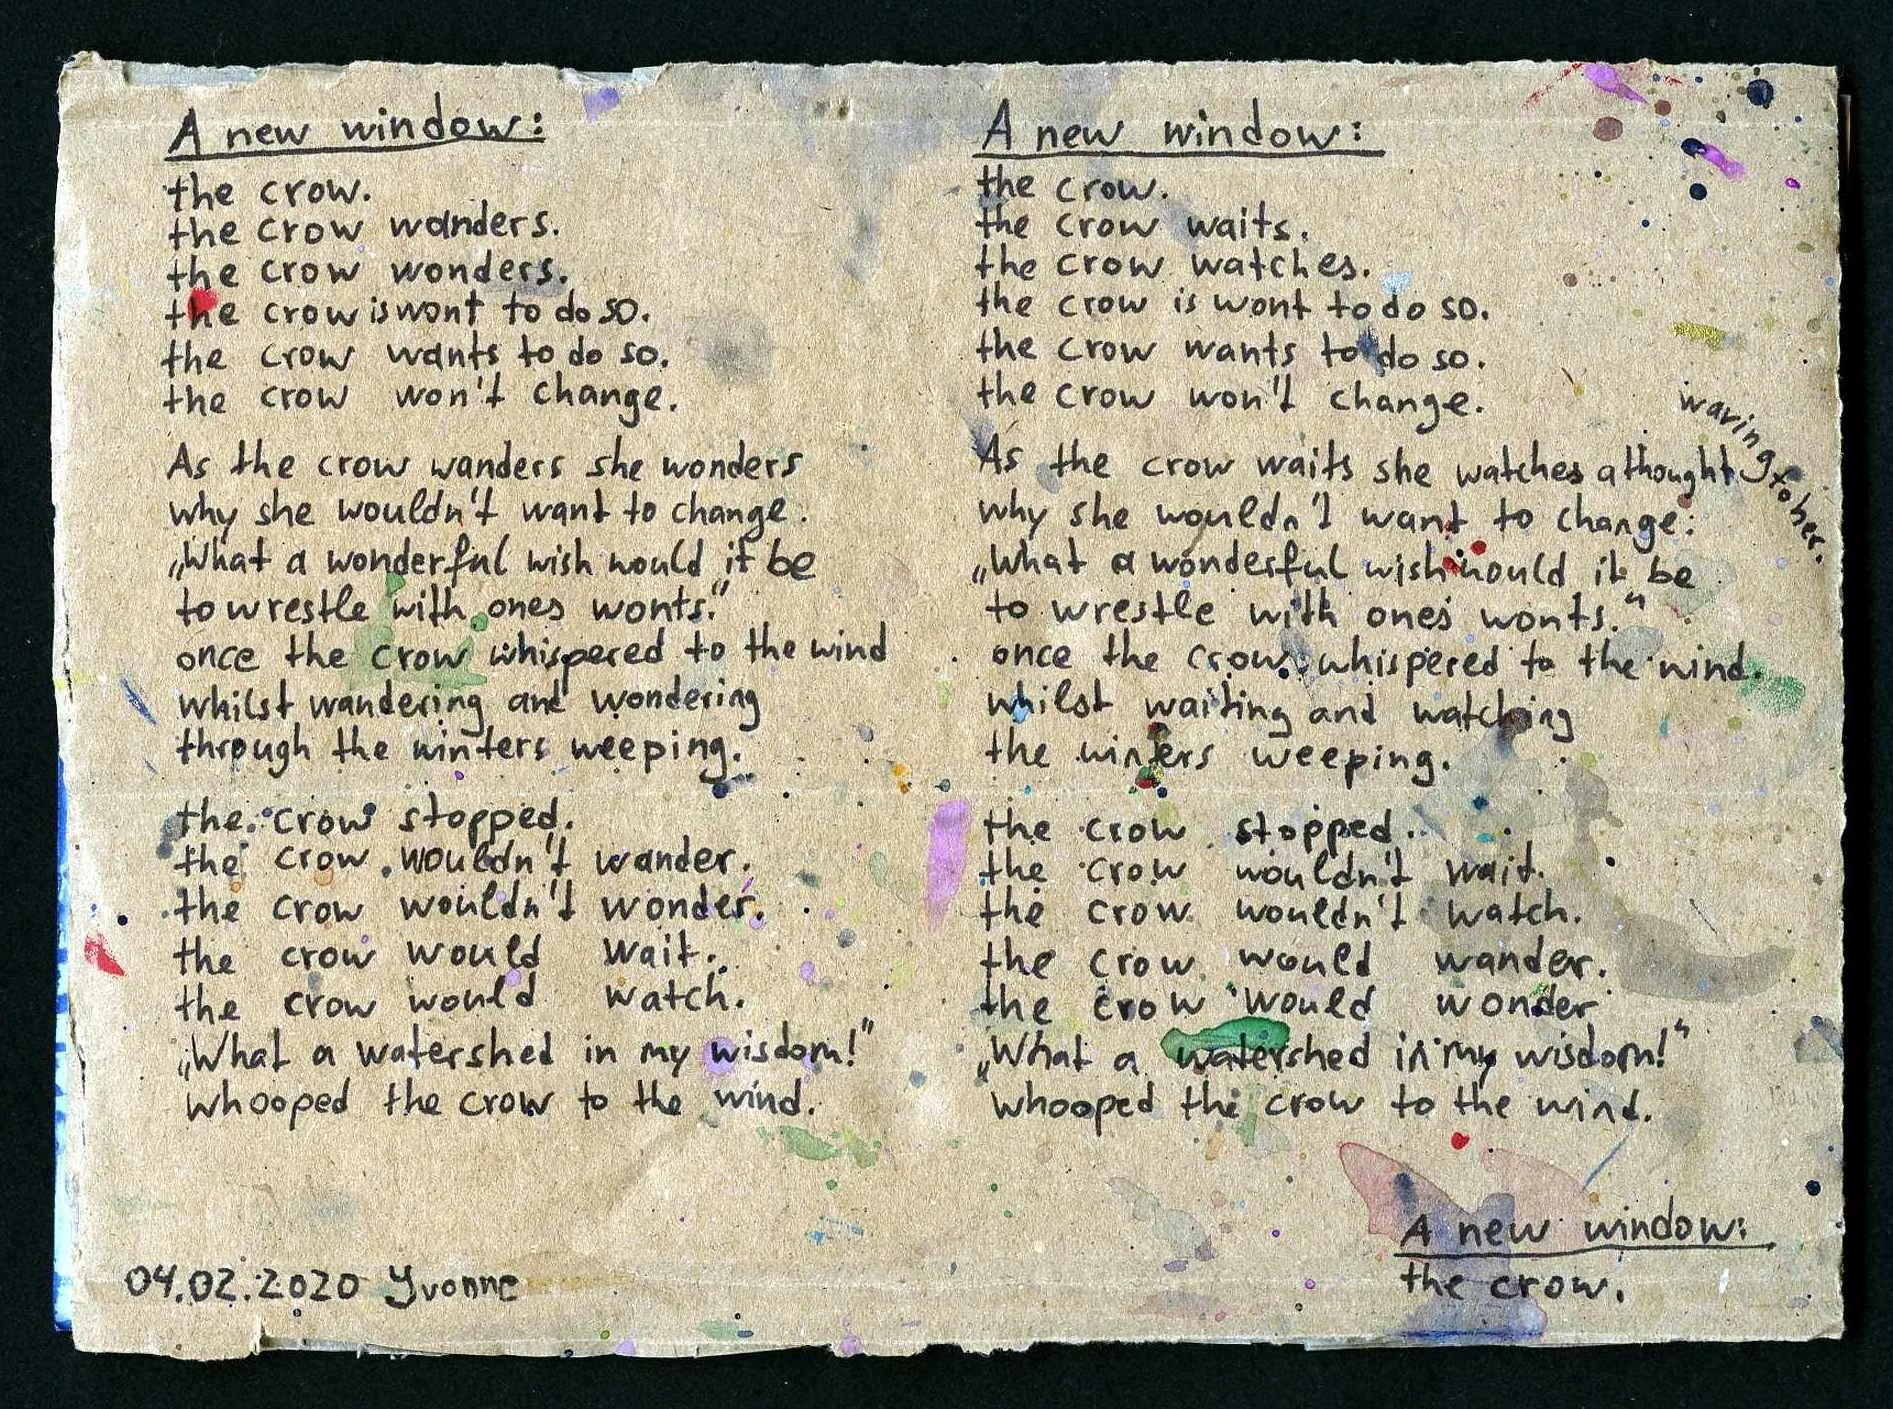 A new window:
the crow.
the crow wanders.
the crow wonders.
the crow is wont to do so.
the crow wants to do so.
the crow won't change.
As the crow wanders she wonders
why she wouldn't want to change.
„What a wonderful wish would it be
to wrestle with ones wonts."
once the crow whispered to the wind
whilst wandering and wondering
through the winters weeping.
the crow stopped.
the crow wouldn't wander.
the crow wouldn't wonder.
the crow would wait.
the crow would watch.
„What a watershed in my wisdom!"
whooped the crow to the wind.
04.02.2020 Yvonne
A new window:
the crow.
the crow waits.
the crow watches.
the crow is wont to do so.
the crow wants to do so.
the crow won't change.
As the crow waits she watches a thought waving to her.
why she wouldn't want to change:
„What a wonderful wish would it be
to wrestle with ones wonts."
once the crow whispered to the wind.
whilst waiting and watching
the winters weeping.
the crow stopped.
the crow wouldn't wait.
the crow wouldn't watch.
the crow would wander.
the crow would wonder
„What a watershed in my wisdom!"
whooped the crow to the wind.
A new window:
the crow.